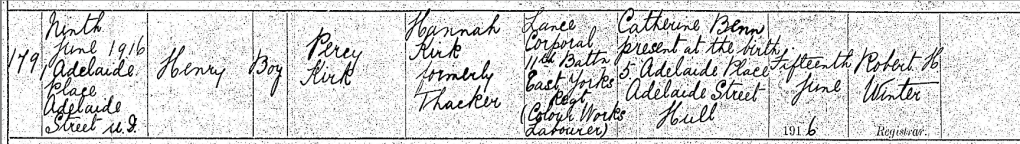 179
Ninth
June 1916
1 Adelaide
Place
Adelaide
Street U.D.
Henry
Boy
Percy
Kirk
Hannah
Kirk
formerly
Thacker
Lance
Corporal
11th Battn
East Yorks
Regt
(Colour Works
Labourer)
Catherine Benn
present at the birth
5 Adelaide Place
Adelaide Street
Hull
Fifteenth
June
1916
Robert H
Winter
Registrar.